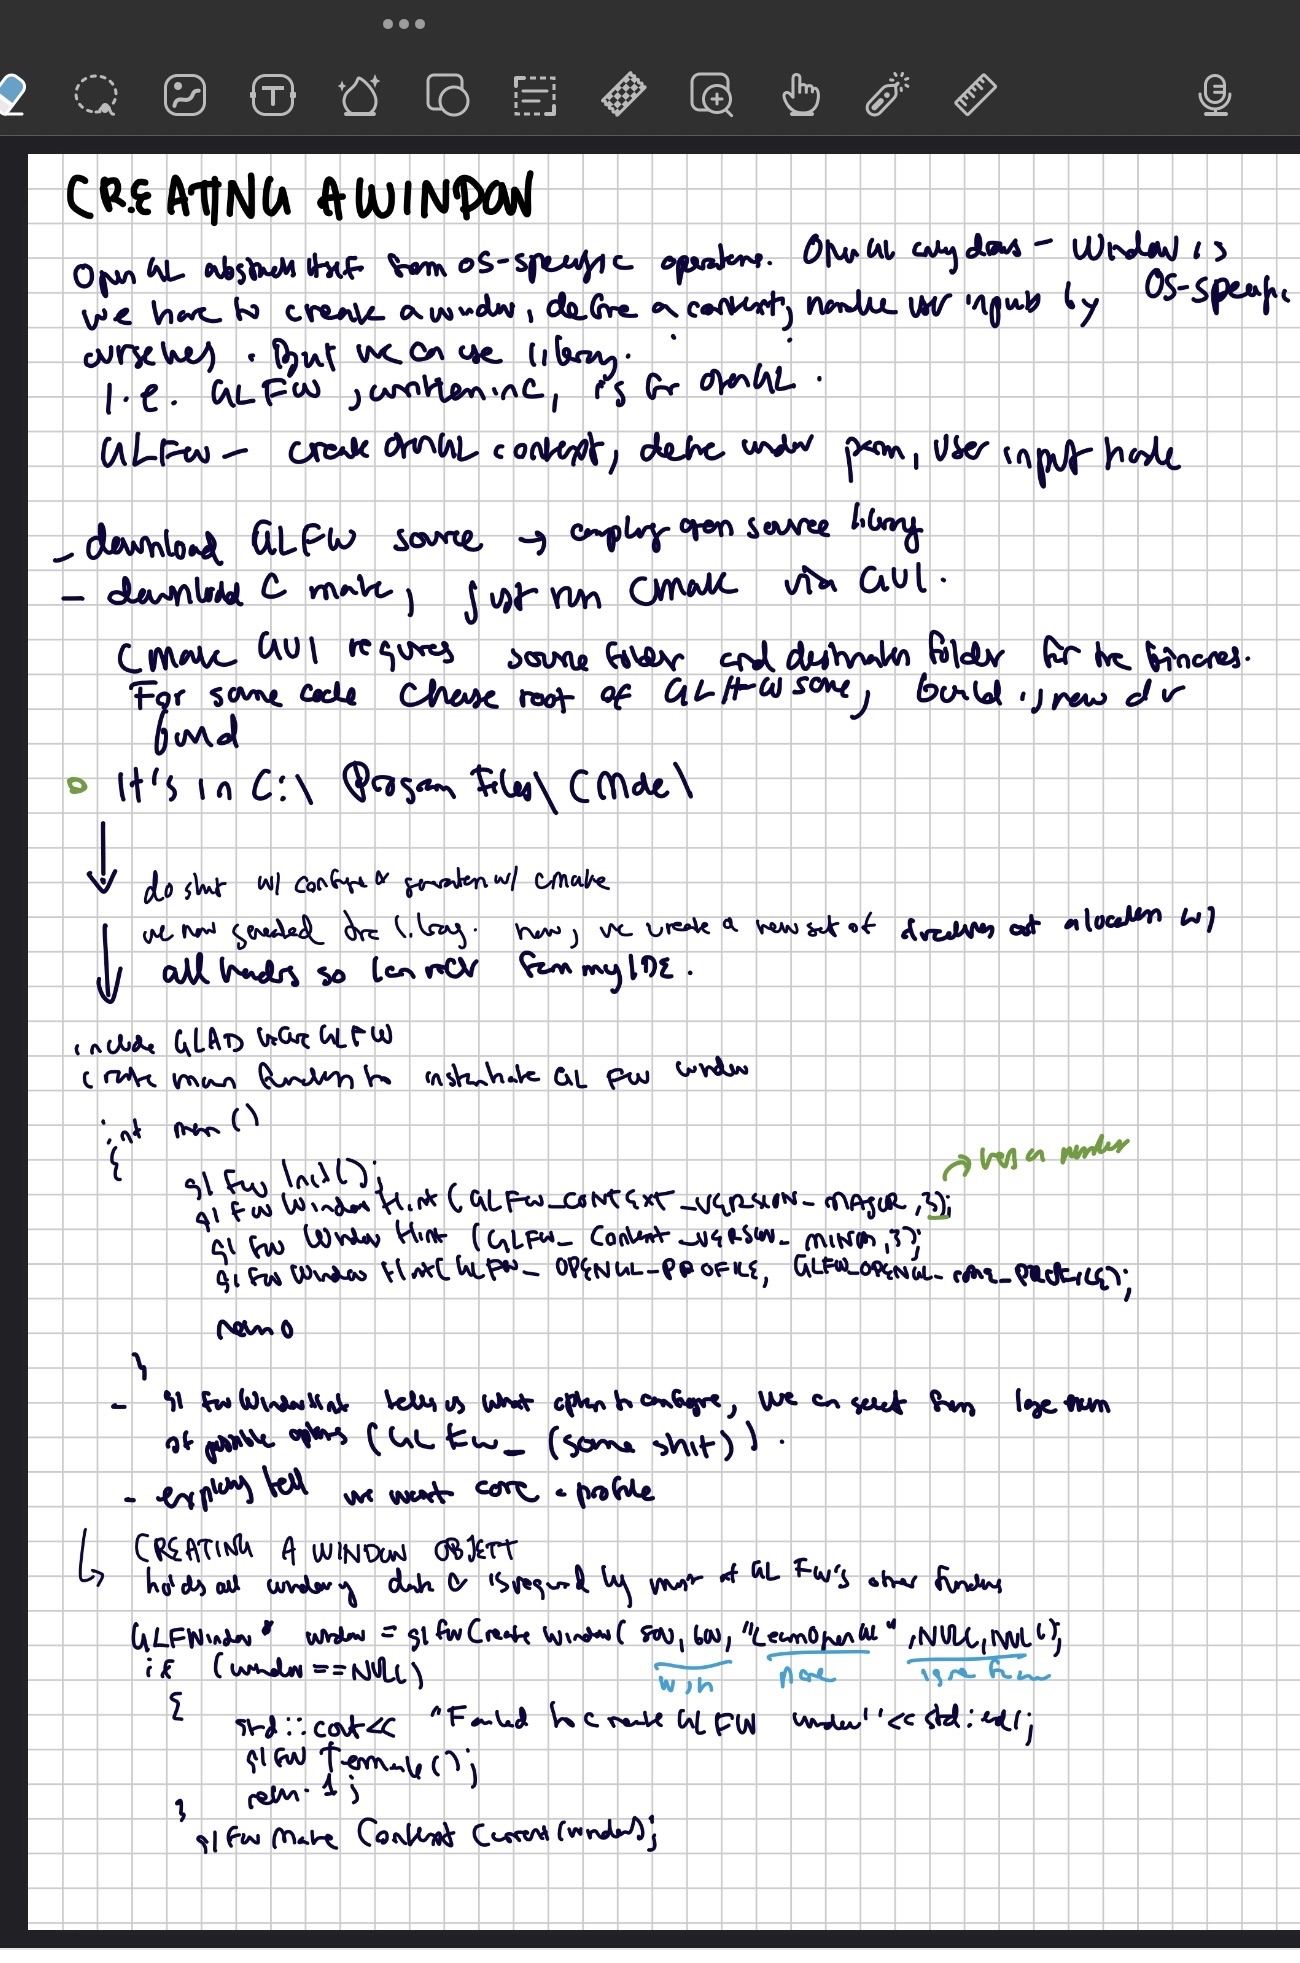 CREATING A WINDOW
OpenGL abstracts itself from OS-specific operations. OpenGL only draws - Window is
OS-specific
we have to create a window, define a context, handle user inputs by
ourselves. But we can use library.
I.e. GLFW, written in C, is for OpenGL.
GLFW - create OpenGL context, define window param, user input handle
- download GLFW source → compiling from source library
- download Cmake, just run Cmake via GUI.
Cmake GUI requires source folder and destination folder for the binaries.
For some code chose root of GLFW some, build :, new dir
build
It's in C:\ Program Files\ CMake\
do shit w/ configure & generation w/ cmake
we now generated the library. now, we create a new set of directories at a location w/
all headers so I can reach from my IDE.
include GLAD before GLFW
create main function to instantiate GLFW window
int main()
{
glfwInit();
version number
glfwWindowHint(GLFW_CONTEXT_VERSION_MAJOR,3);
glfwWindowHint(GLFW_Context_VERSION_MINOR,3);
glfwWindowHint(GLFW_OPENGL_PROFILE, GLFW_OPENGL_CORE_PROFILE);
return 0
}
- glfwWindowHint tells us what option to configure, we can select from large num
of possible options (GLFW_(some shit)).
- explicitly tell we want core-profile
CREATING A WINDOW OBJECT
holds all windowing data & is required by most of GLFW's other functions
GLFWindow* window = glfwCreateWindow(800,600,"LearnOpenGL",NULL,NULL);
w,h name ignore them
if (window==NULL)
{
std::cout<< "Failed to create GLFW window"<<std::endl;
glfwTerminate();
return -1;
}
glfwMakeContextCurrent(window);